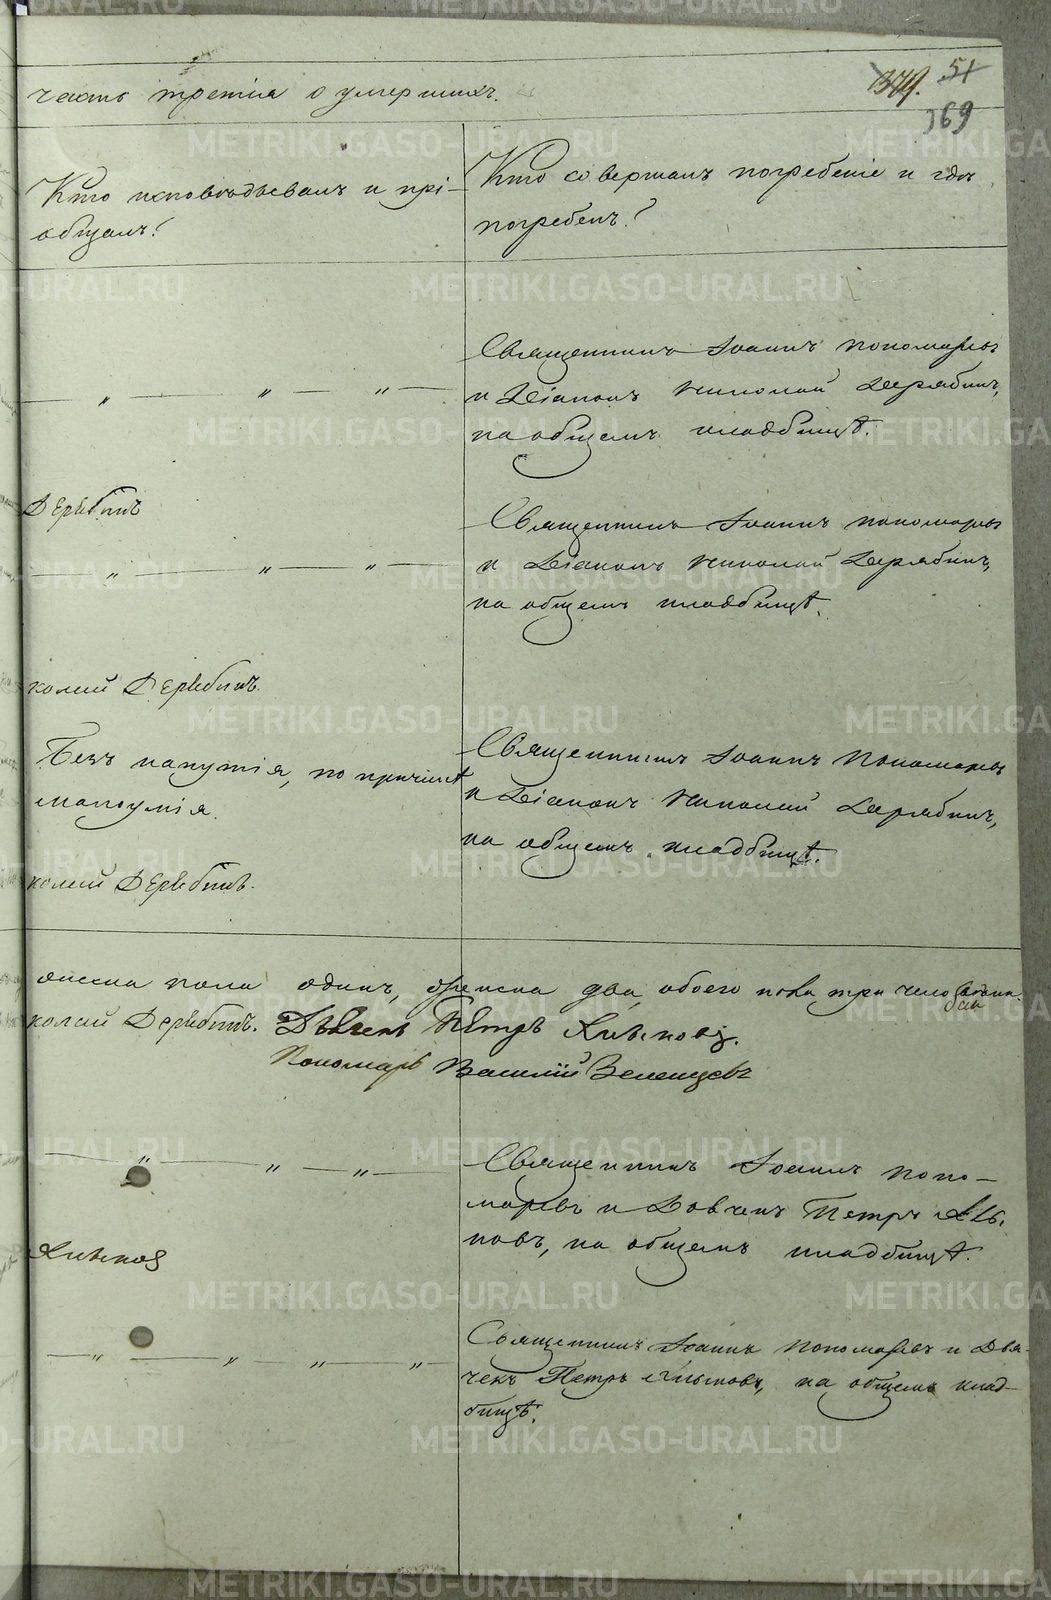 часть третія о умершихъ.
379. 51
369
Кто исповѣдывалъ и прі-
общалъ?
Кто совершалъ погребеніе и гдѣ
погребенъ?
Священникъ Іоаннъ Пономаревъ
и Діаконъ Николай Дерябинъ,
на общемъ кладбищѣ.
— „ — „ — „ —
Дерябинъ
Священникъ Іоаннъ Пономаревъ
и Діаконъ Николай Дерябинъ,
на общемъ кладбищѣ.
— „ — „ — „ —
колай Дерябинъ.
Безъ напутія, по причинѣ
малоумія.
Священникъ Іоаннъ Пономаревъ
и Діаконъ Николай Дерябинъ,
на общемъ кладбищѣ.
колай Дерябинъ.
ожеска пола одинъ, женска два, обоего пола три
колай Дерябинъ. Дьячекъ Петръ
Пономарь Василій
— „ — „ — „ —
Священникъ Іоаннъ Поно-
маревъ и Дьячекъ Петръ
на общемъ кладбищѣ.
— „ — „ — „ — „
Священникъ Іоаннъ Пономаревъ и Дья-
чекъ Петръ на общемъ клад-
бищѣ.
METRIKI.GASO-URAL.RU